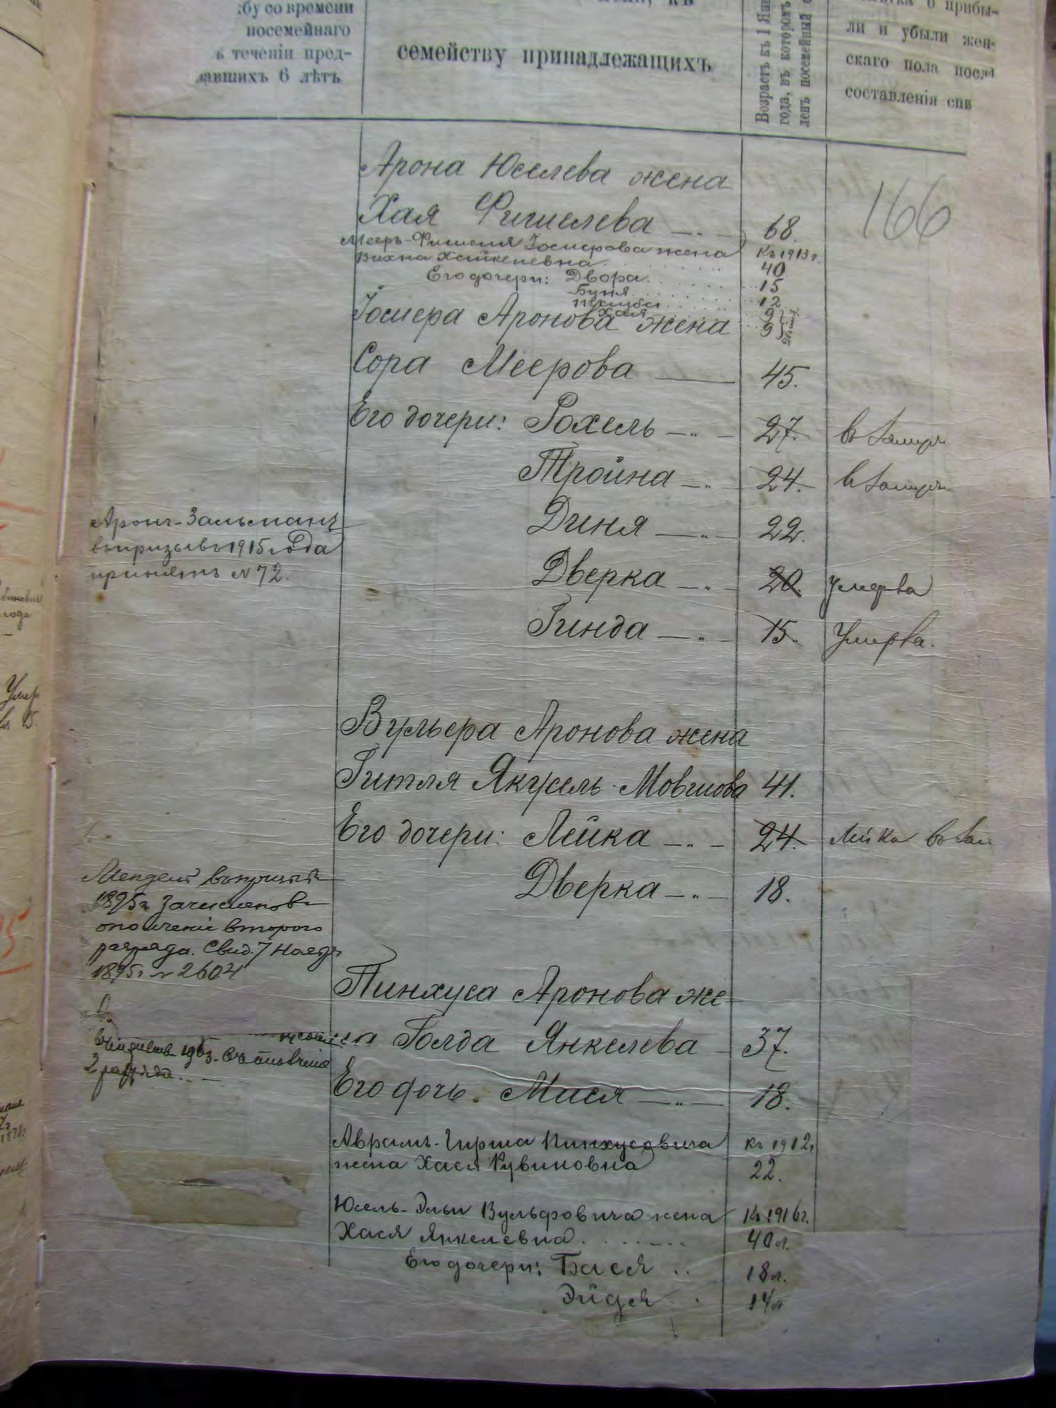 бу со времени
посемейнаго
ъ теченіи пред-
авшихъ 6 лѣтъ
семейству принадлежащихъ
Возрастъ къ 1 Янв
года, въ которомъ
ленъ посемейный с
о прибы-
ли и убыли жен-
скаго пола послѣ
составленія спи
166
Арона Юселева жена
Хая Фишелева — 68.
Мееръ-Фишеля Іосиерова жена къ 1913 г.
Вихна Хайкелевна 40
Его дочери: Двора 15
Буня 12
Хася 9
Іосиера Аронова жена
Сора Меерова — 45.
Его дочери: Рохель — 27. въ
Тройна — 24. въ
Диня — 22.
Дверка — 20. умерла
Гинда — 15. Умерла.
Аронъ-Зальманъ
въ призывъ 1915 года
принятъ № 72.
Вульера Аронова жена
Гитля Якусель-Мовшова 41.
Его дочери: Лейка — 24. Лейка въ
Дверка — 18.
Мендель
1895 г. зачисленъ въ
ополченіе второго
разряда. Свид. 7 Нояб.
1895 г. № 2604
Пинхуса Аронова же-
на Голда Янкелева — 37.
Его дочь. Мися — 18.
2 разряда.
Аврамъ-Гирша Пинхусовича къ 1912 г.
жена Хася Рувиновна 22.
Юсель-Эльи Вульфовича жена къ 1916 г.
Хася Янкелевна 40 л.
Его дочери: Бася 18 л.
Эйдя 14 л